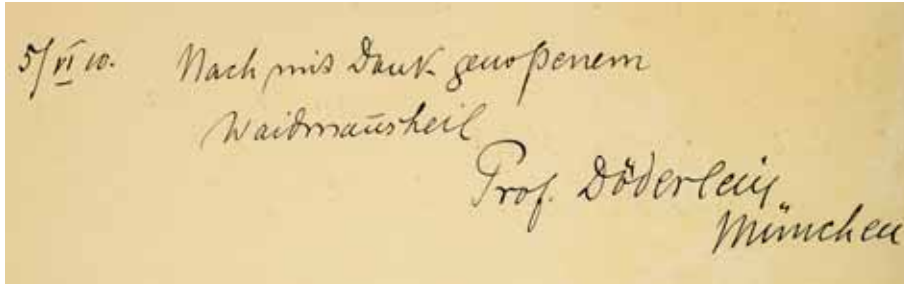 5/VI 10. Nach mit Dank genoßenem
Waidmansheil
Prof. Döderlein
München